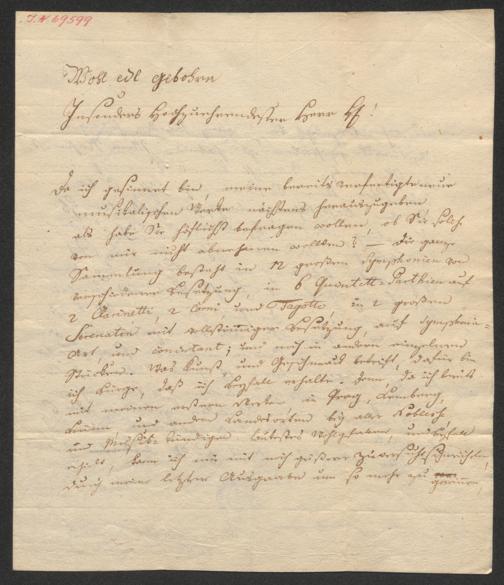 I.N 69599
Wohl edl gebohrn
Insonders Hochzuehrendester Herr
Da ich gesinnet bin, meine bereits verfertigte neue
musikalischen Werke nächstens herauszugeben
als habe Sie höflichst befragen wollen, ob Sie solche
von mir nicht abnehmen wollten? — Die ganze
Sammlung besteht in 12 großen Symphonien von
verschiedener Besetzung, in 6 Quintett-Parthien auf
2 Clarinetti, 2 Corni und Fagotto, in 2 großen
Serenaten mit vollstimmiger Besetzung, auf Symphonie-
Art, und concertant; und noch in andern einzelnen
Stücken. Was Kunst und Geschmack betrifft, dafür bin
ich Bürge, daß ich Beyfall erhalte. Denn, da ich bereits
mit meinen ersten Werken in Prag, Lemberg,
und andern Landesorten bey aller Noblesse
und Musikkündigen Beyfall
erhielt, kann ich mir mit größerer Zuversicht schmeicheln,
durch meine letztere Ausgaabe um so mehr zu gewinnen,